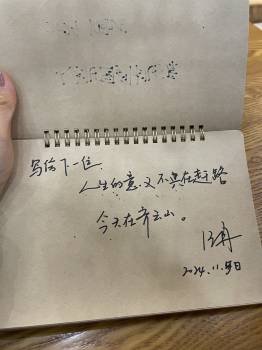 写给下一位
人生的意义不只在赶路
今天在齐云山。
2024.11.